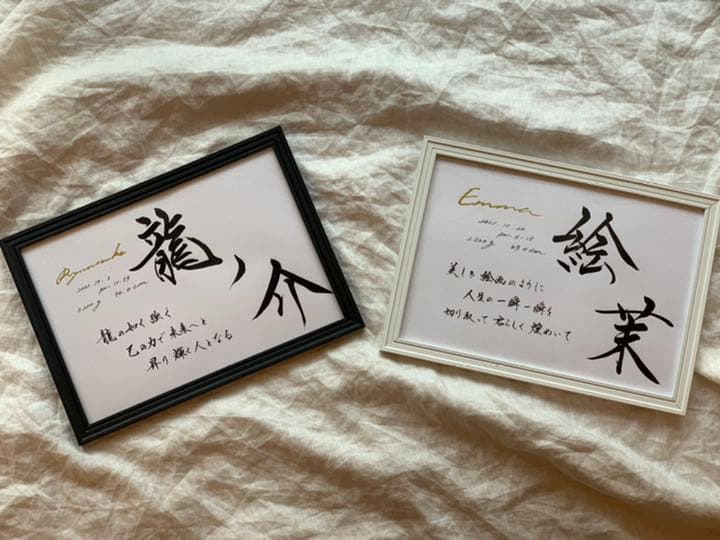 Ryunosuke
龍ノ介
2021.10.6
2500g 50.0cm
龍の如く強く
己の力で未来へと
昇り輝く人となる
Emma
2021.11.20
pm 6:15
49.0cm
絵茉
美しき絵画のように
人生の一瞬一瞬を
切り取って君らしく煌めいて